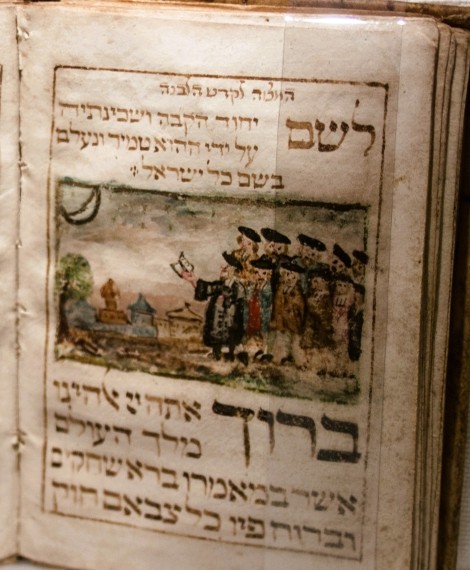 לקדש הלבנה
לשם יחוד הקבה ושכינתיה
על ידי ההוא טמיר ונעלם
בשם כל ישראל:
ברוך אתה יי אלהינו
מלך העולם
אשר במאמרו ברא שחקים
וברוח פיו כל צבאם חוק